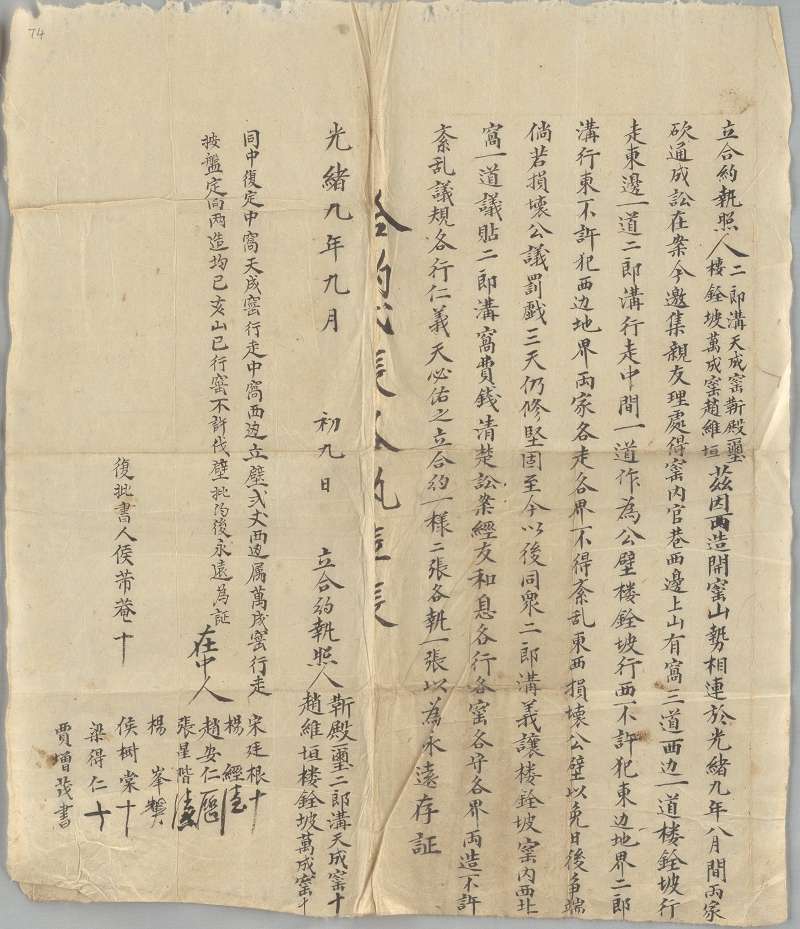 74
立合約執照人二郎溝天成窑靳殿璽樓銓坡萬成窑趙維垣茲因兩造開窑山勢相連於光緒九年八月間兩家
砍通成訟在案今邀集親友理處得窑内官巷西邊上山有窩三道西边一道楼銓坡行
走東邊一道二郎溝行走中間一道作為公壁楼銓坡行西不許犯東边地界二郎
溝行東不許犯西边地界两家各走各界不得紊乱東西損壞公壁以免日後争端
倘若損壞公議罰戲三天仍修堅固至今以後同衆二郎溝義讓楼銓坡窑内西北
窩一道議貼二郎溝窩費錢清楚訟案經友和息各行各窑各守各界两造不許
紊乱議規各行仁義天必佑之立合約一樣二張各執一張以為永遠存証
光緒九年九月 初九日 立合約執照人靳殿璽二郎溝天成窑十
趙維垣楼銓坡萬成窑十
同中復定中窩天成窑行走中窩西边立壁弍丈西边属萬成窑行走
按盤定向两造均已亥山已行窑不許伐壁批約後永遠為証
在中人
宋廷根十
楊經
趙安仁
張星階
楊峯
侯樹棠十
梁得仁十
賈增茂書
復批書人侯芾菴十